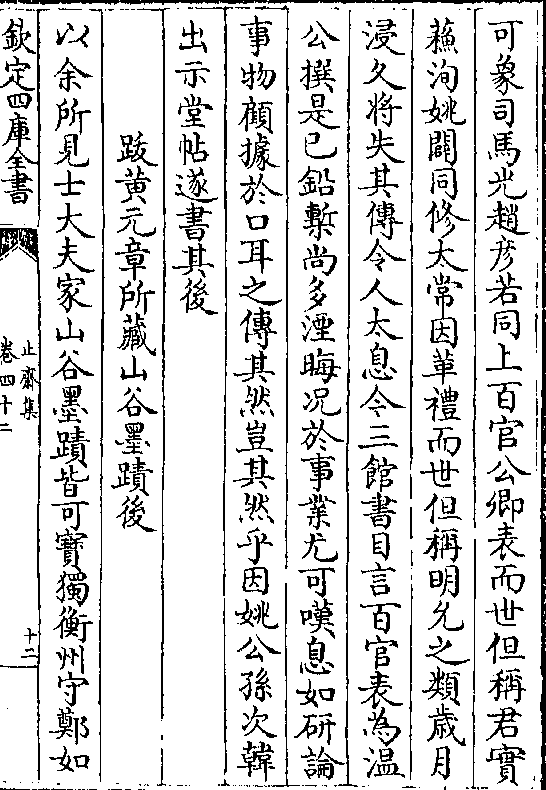 可象司馬光趙彦若同上百官公卿表而世但稱君實
蘓洵姚闢同修太常因革禮而世但稱明允之類歲月
浸久將失其傳令人太息今三館書目言百官表為温
公撰是已鉛槧尚多湮晦况於事業尤可嘆息如研論
事物顧據於口耳之傳其然豈其然乎因姚公孫次韓
出示堂帖遂書其後
跋黄元章所藏山谷墨蹟後
以余所見士大夫家山谷墨蹟皆可寳獨衡州守鄭如
欽定四庫全書
止齋集
卷四十二
十二